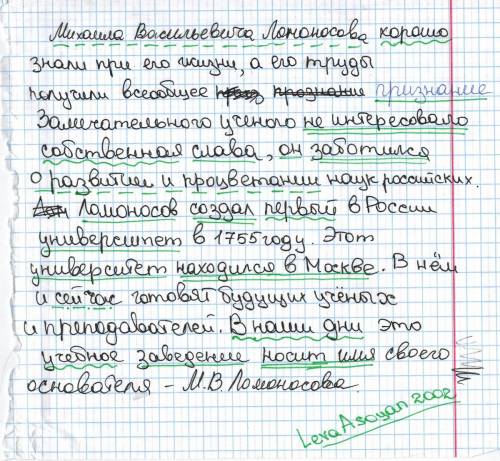 Михаила Васильевича Ломоносова хорошо
знали при его жизни, а его труды
получили всеобщее признание
Замечательного учёного не интересовало
собственная слава, он заботился
о развитии и процветании наук российских.
Ломоносов создал первый в России
университет в 1755 году. Этот
университет находился в Москве. В нём
и сейчас готовят будущих учёных
и преподавателей. В наши дни это
учебное заведение носит имя своего
основателя – М.В Ломоносова.
Lera Asoyan 2002